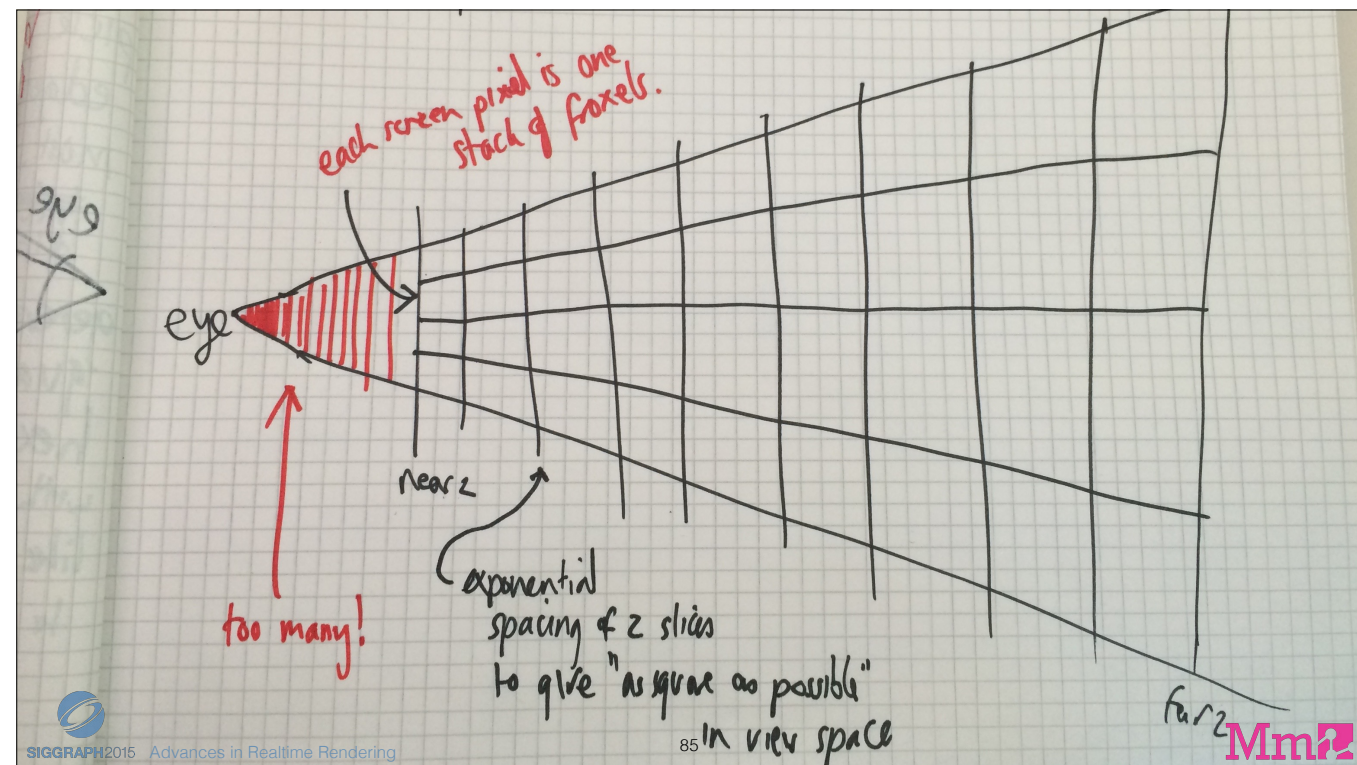 each screen pixel is one
stack of froxels.
eye
eye
near z
too many!
exponential
spacing of z slices
to give "as square as possible"
in view space
far z
SIGGRAPH2015 Advances in Realtime Rendering
85
Mm